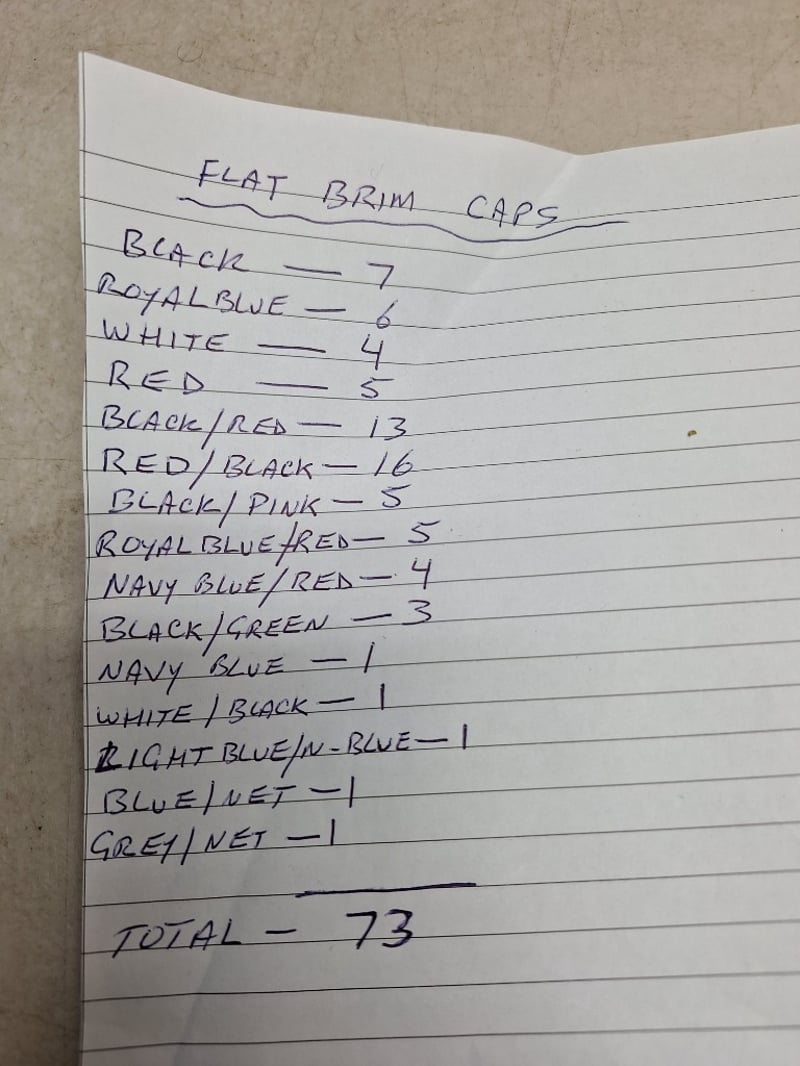 FLAT BRIM CAPS
BLACK — 7
ROYAL BLUE — 6
WHITE — 4
RED — 5
BLACK/RED — 13
RED/BLACK — 16
BLACK/PINK — 5
ROYAL BLUE/RED — 5
NAVY BLUE/RED — 4
BLACK/GREEN — 3
NAVY BLUE — 1
WHITE/BLACK — 1
LIGHT BLUE/N-BLUE — 1
BLUE/NET — 1
GREY/NET — 1
TOTAL — 73